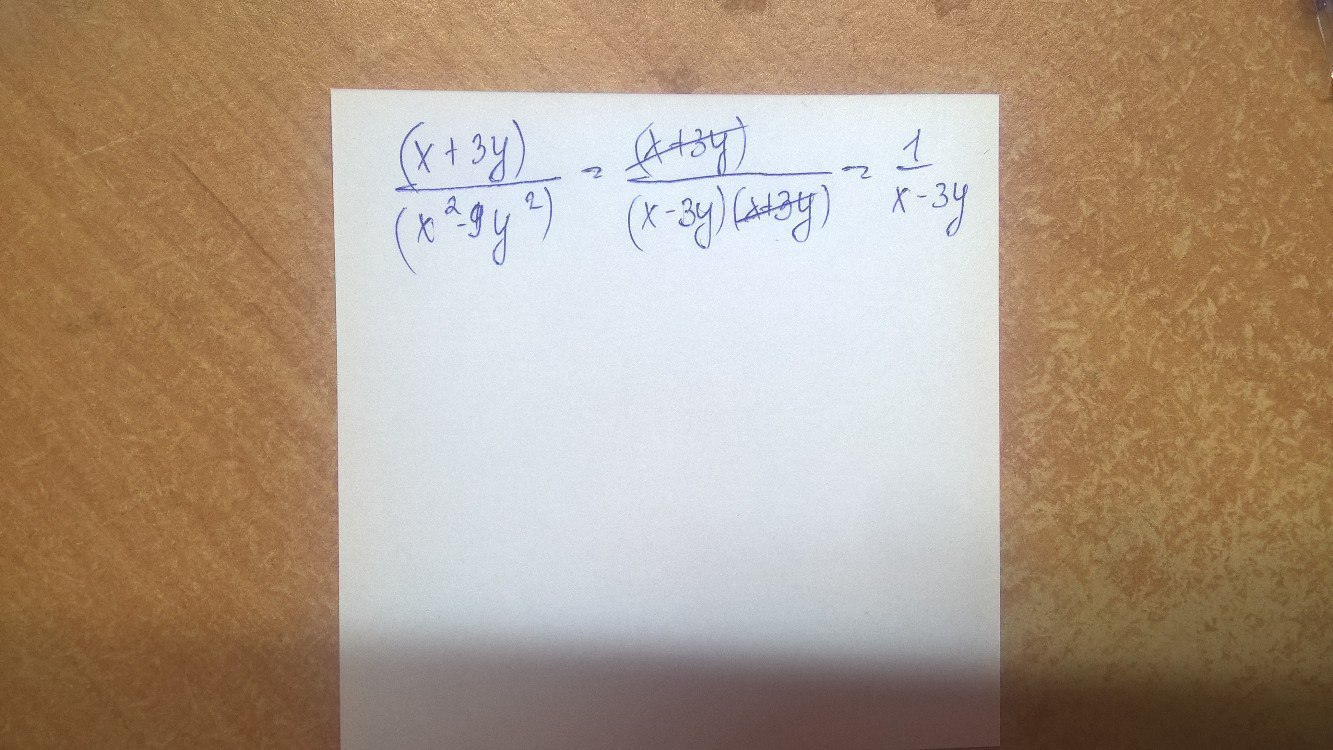 (x+3y)/(x²-9y²) = (x+3y)/((x-3y)(x+3y)) = 1/(x-3y)